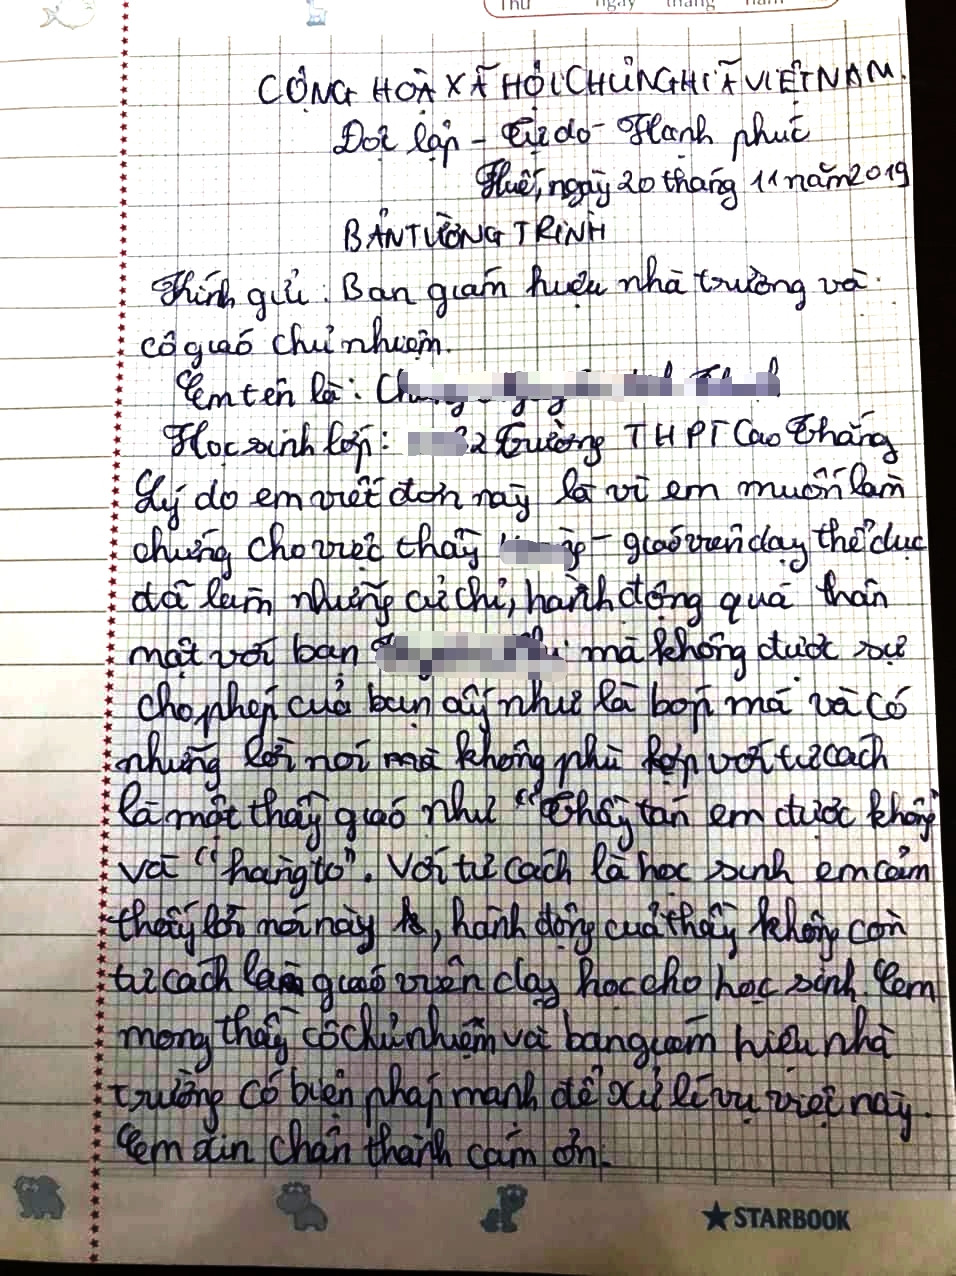 Thứ ngày tháng năm
CỘNG HOÀ XÃ HỘI CHỦ NGHĨA VIỆT NAM.
Độc lập - Tự do - Hạnh phúc
Huế, ngày 20 tháng 11 năm 2019
BẢN TƯỜNG TRÌNH
Kính gửi: Ban giám hiệu nhà trường và
cô giáo chủ nhiệm.
Em tên là:
Học sinh lớp: 2 Trường THPT Cao Thắng
Lý do em viết đơn này là vì em muốn làm
chứng cho việc thầy - giáo viên dạy thể dục
đã làm những cử chỉ, hành động quá thân
mật với bạn mà không được sự
cho phép của bạn ấy như là bóp má và có
những lời nói mà không phù hợp với tư cách
là một thầy giáo như "Thầy tán em được không"
và "hàng to". Với tư cách là học sinh em cảm
thấy lời nói này, hành động của thầy không còn
tư cách là giáo viên dạy học cho học sinh. Em
mong thầy cô chủ nhiệm và ban giám hiệu nhà
trường có biện pháp mạnh để xử lí vụ việc này.
Em xin chân thành cám ơn.
STARBOOK